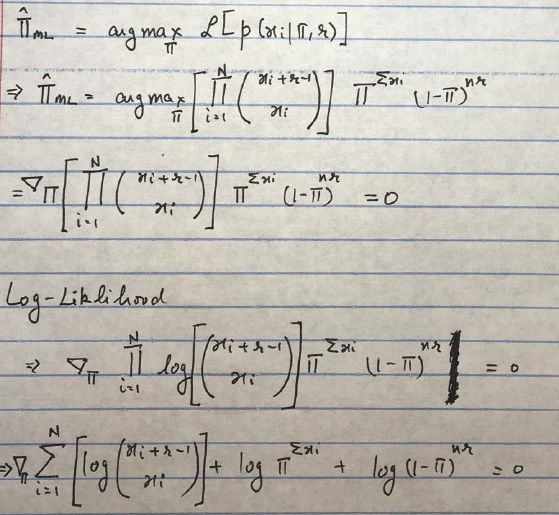 π̂_ML = argmax_π L[p(x_i|π,r)]
⇒ π̂_ML = argmax_π [∏_{i=1}^{N} (x_i+r-1 x_i)] π^{Σx_i} (1-π)^{nr}
= ∇_π [∏_{i=1}^{N} (x_i+r-1 x_i)] π^{Σx_i} (1-π)^{nr} = 0
Log-Liklihood
⇒ ∇_π ∏_{i=1}^{N} log[(x_i+r-1 x_i)] π^{Σx_i} (1-π)^{nr} = 0
⇒ ∇_π Σ_{i=1}^{N} [log(x_i+r-1 x_i)] + log π^{Σx_i} + log(1-π)^{nr} = 0